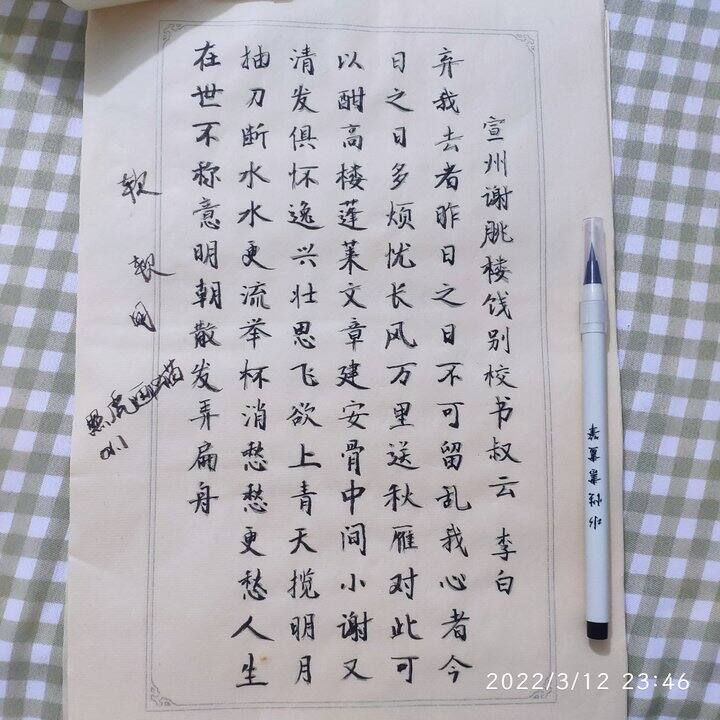 宣州谢朓楼饯别校书叔云 李白
弃我去者昨日之日不可留乱我心者今
日之日多烦忧长风万里送秋雁对此可
以酣高楼蓬莱文章建安骨中间小谢又
清发俱怀逸兴壮思飞欲上青天揽明月
抽刀断水水更流举杯消愁愁更愁人生
在世不称意明朝散发弄扁舟
软软
照虎画猫
水性書畫筆
2022/3/12 23:46